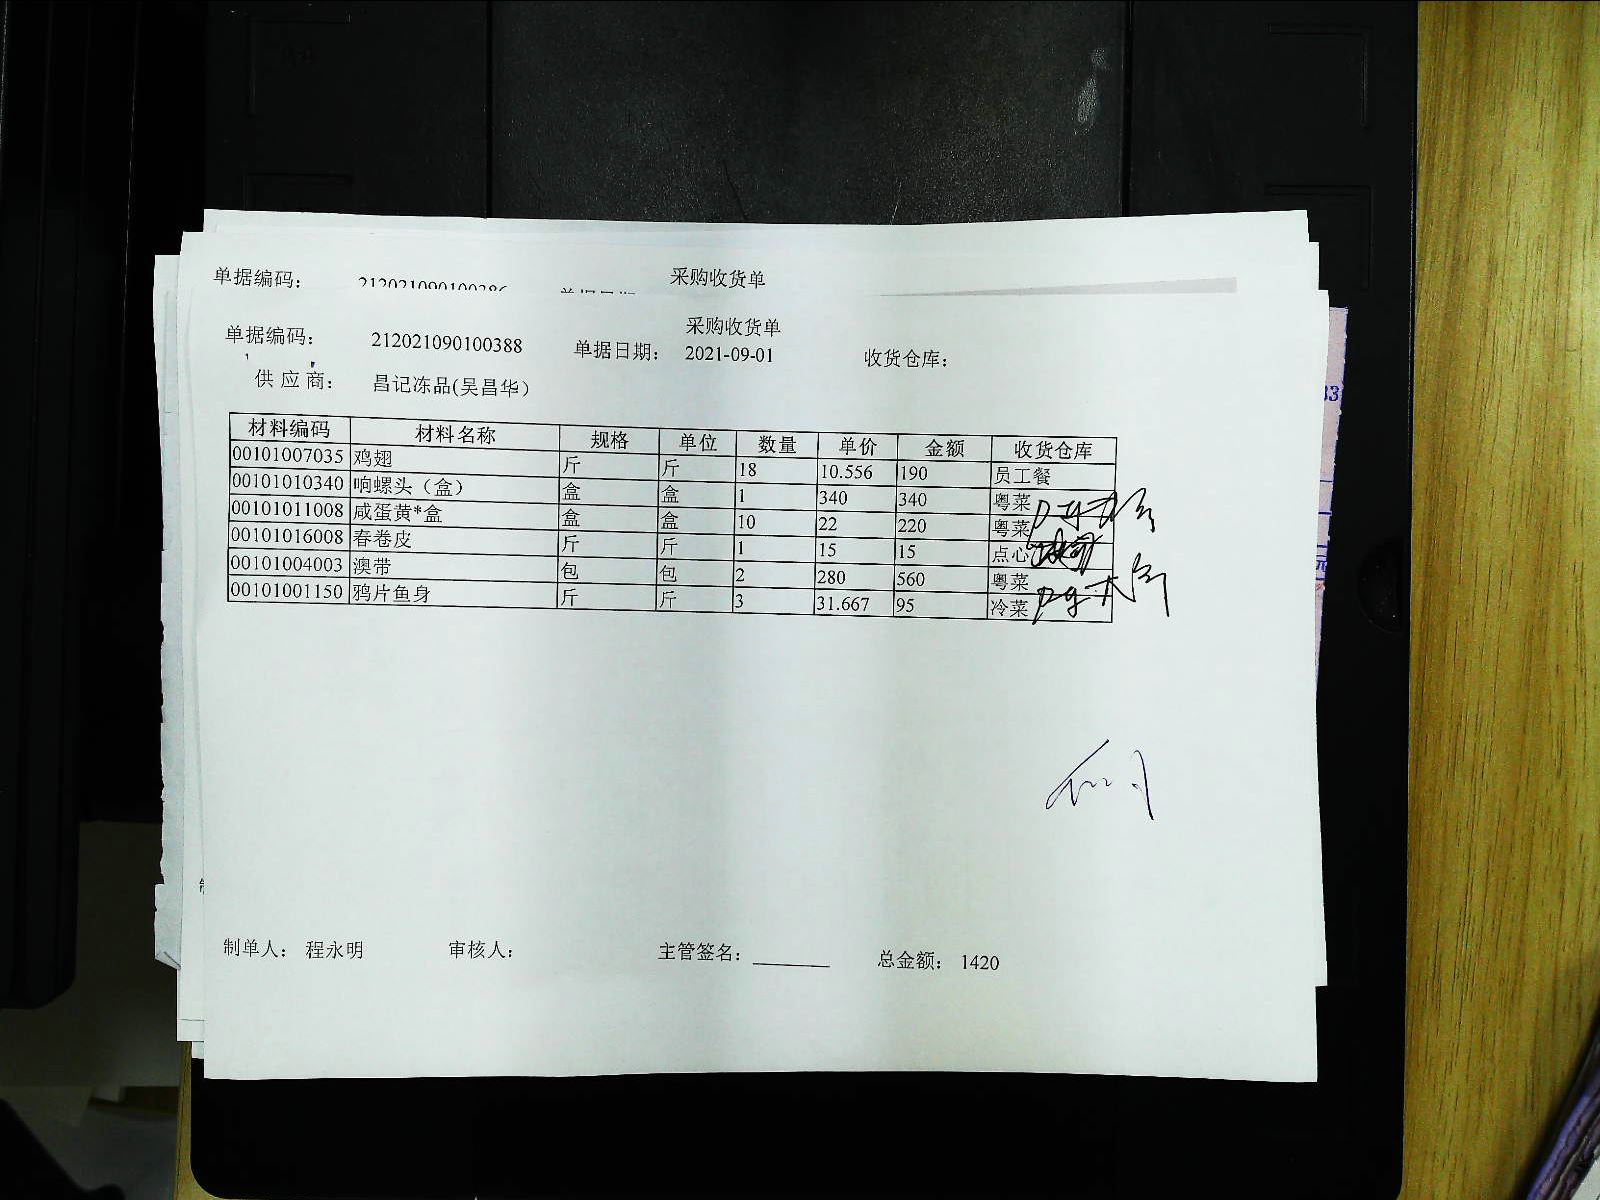 单据编码： 采购收货单
采购收货单
单据编码： 212021090100388 单据日期： 2021-09-01 收货仓库：
供应商： 昌记冻品(吴昌华）
材料编码 材料名称 规格 单位 数量 单价 金额 收货仓库
00101007035 鸡翅 斤 斤 18 10.556 190 员工餐
00101010340 响螺头（盒） 盒 盒 1 340 340 粤菜
00101011008 咸蛋黄*盒 盒 盒 10 22 220 粤菜
00101016008 春卷皮 斤 斤 1 15 15 点心
00101004003 澳带 包 包 2 280 560 粤菜
00101001150 鸦片鱼身 斤 斤 3 31.667 95 冷菜
制单人： 程永明 审核人： 主管签名： 总金额： 1420